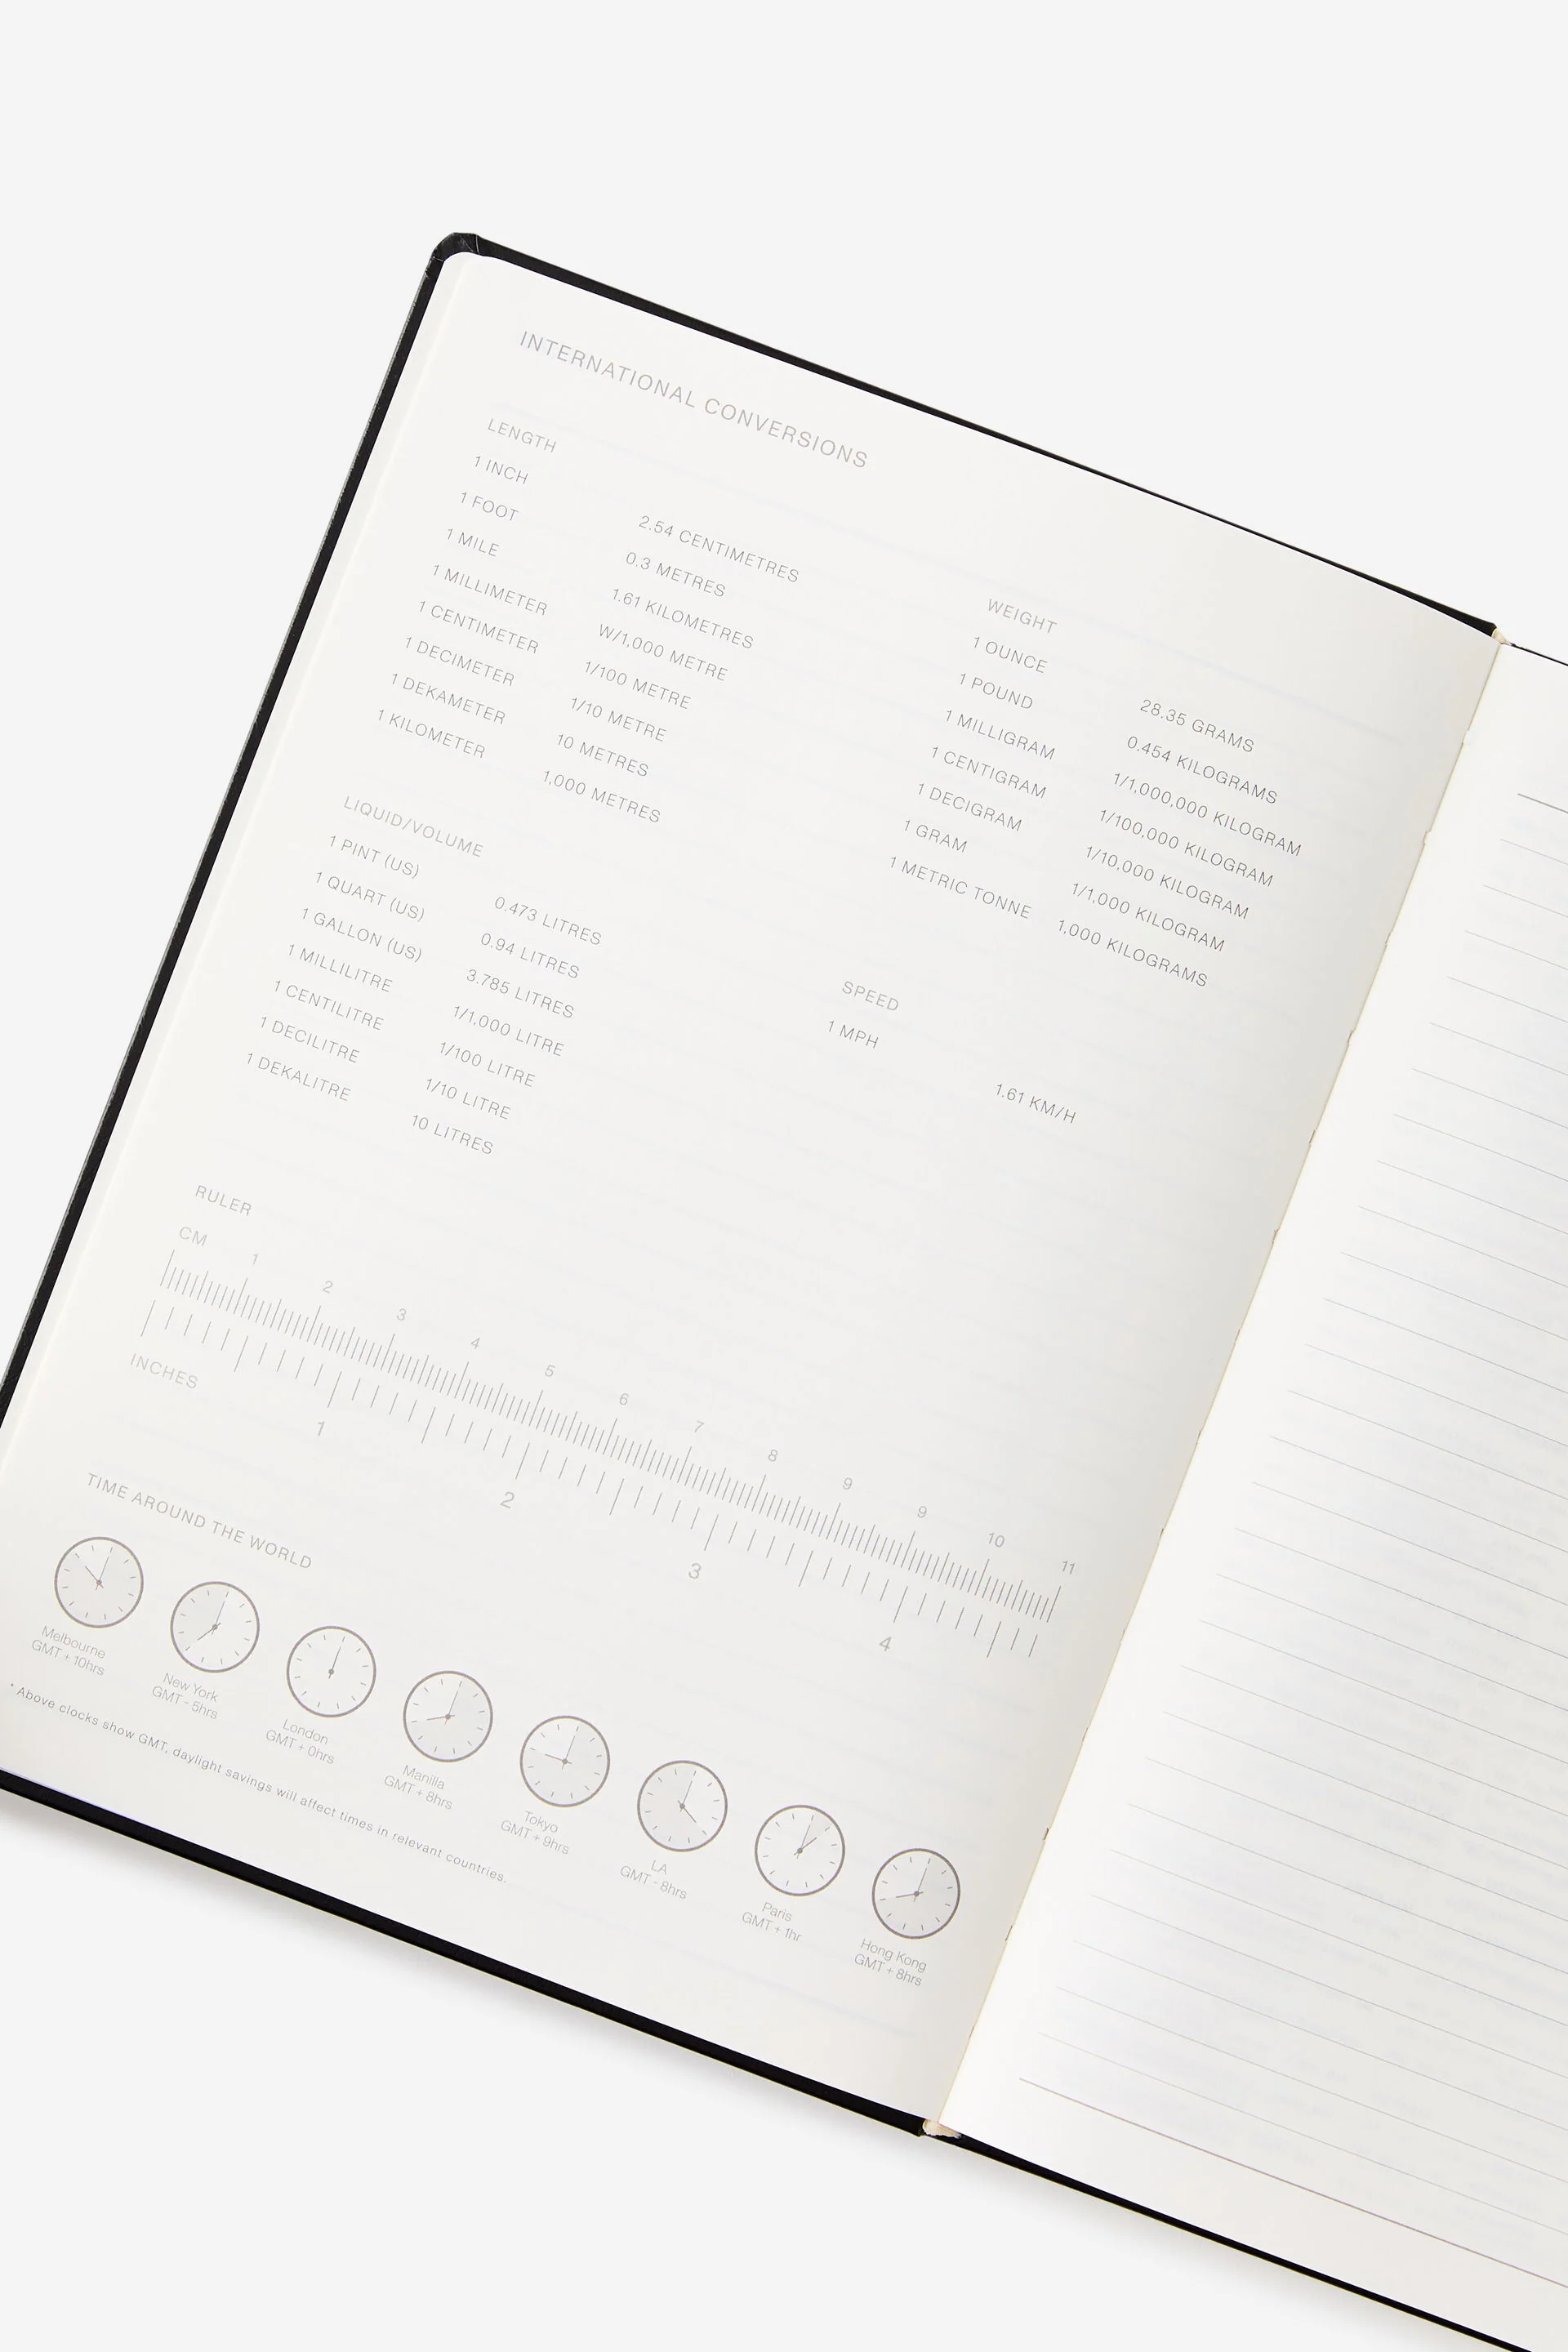 INTERNATIONAL CONVERSIONS
LENGTH
1 INCH 2.54 CENTIMETRES
1 FOOT 0.3 METRES
1 MILE 1.61 KILOMETRES
1 MILLIMETER W/1,000 METRE
1 CENTIMETER 1/100 METRE
1 DECIMETER 1/10 METRE
1 DEKAMETER 10 METRES
1 KILOMETER 1,000 METRES
LIQUID/VOLUME
1 PINT (US) 0.473 LITRES
1 QUART (US) 0.94 LITRES
1 GALLON (US) 3.785 LITRES
1 MILLILITRE 1/1,000 LITRE
1 CENTILITRE 1/100 LITRE
1 DECILITRE 1/10 LITRE
1 DEKALITRE 10 LITRES
WEIGHT
1 OUNCE 28.35 GRAMS
1 POUND 0.454 KILOGRAMS
1 MILLIGRAM 1/1,000,000 KILOGRAM
1 CENTIGRAM 1/100,000 KILOGRAM
1 DECIGRAM 1/10,000 KILOGRAM
1 GRAM 1/1,000 KILOGRAM
1 METRIC TONNE 1,000 KILOGRAMS
SPEED
1 MPH 1.61 KM/H
RULER
CM
1 2 3 4 5 6 7 8 9 9 10 11
INCHES
1 2 3 4
TIME AROUND THE WORLD
Melbourne
GMT + 10hrs
New York
GMT - 5hrs
London
GMT + 0hrs
Manilla
GMT + 8hrs
Tokyo
GMT + 9hrs
LA
GMT - 8hrs
Paris
GMT + 1hr
Hong Kong
GMT + 8hrs
* Above clocks show GMT, daylight savings will affect times in relevant countries.